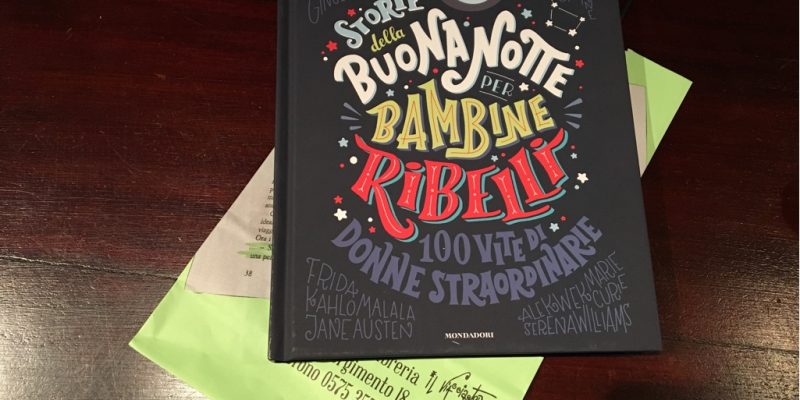 STORIE
della
BUONANOTTE
PER
BAMBINE
RIBELLI
100 VITE DI
DONNE STRAORDINARIE
FRIDA
KAHLO MALALA
JANE AUSTEN
ALEK WEK MARIE
CURIE
SERENA WILLIAMS
MONDADORI
viagg
Ora i
una pe
38
breria IL
rgimento 18
fono 0575